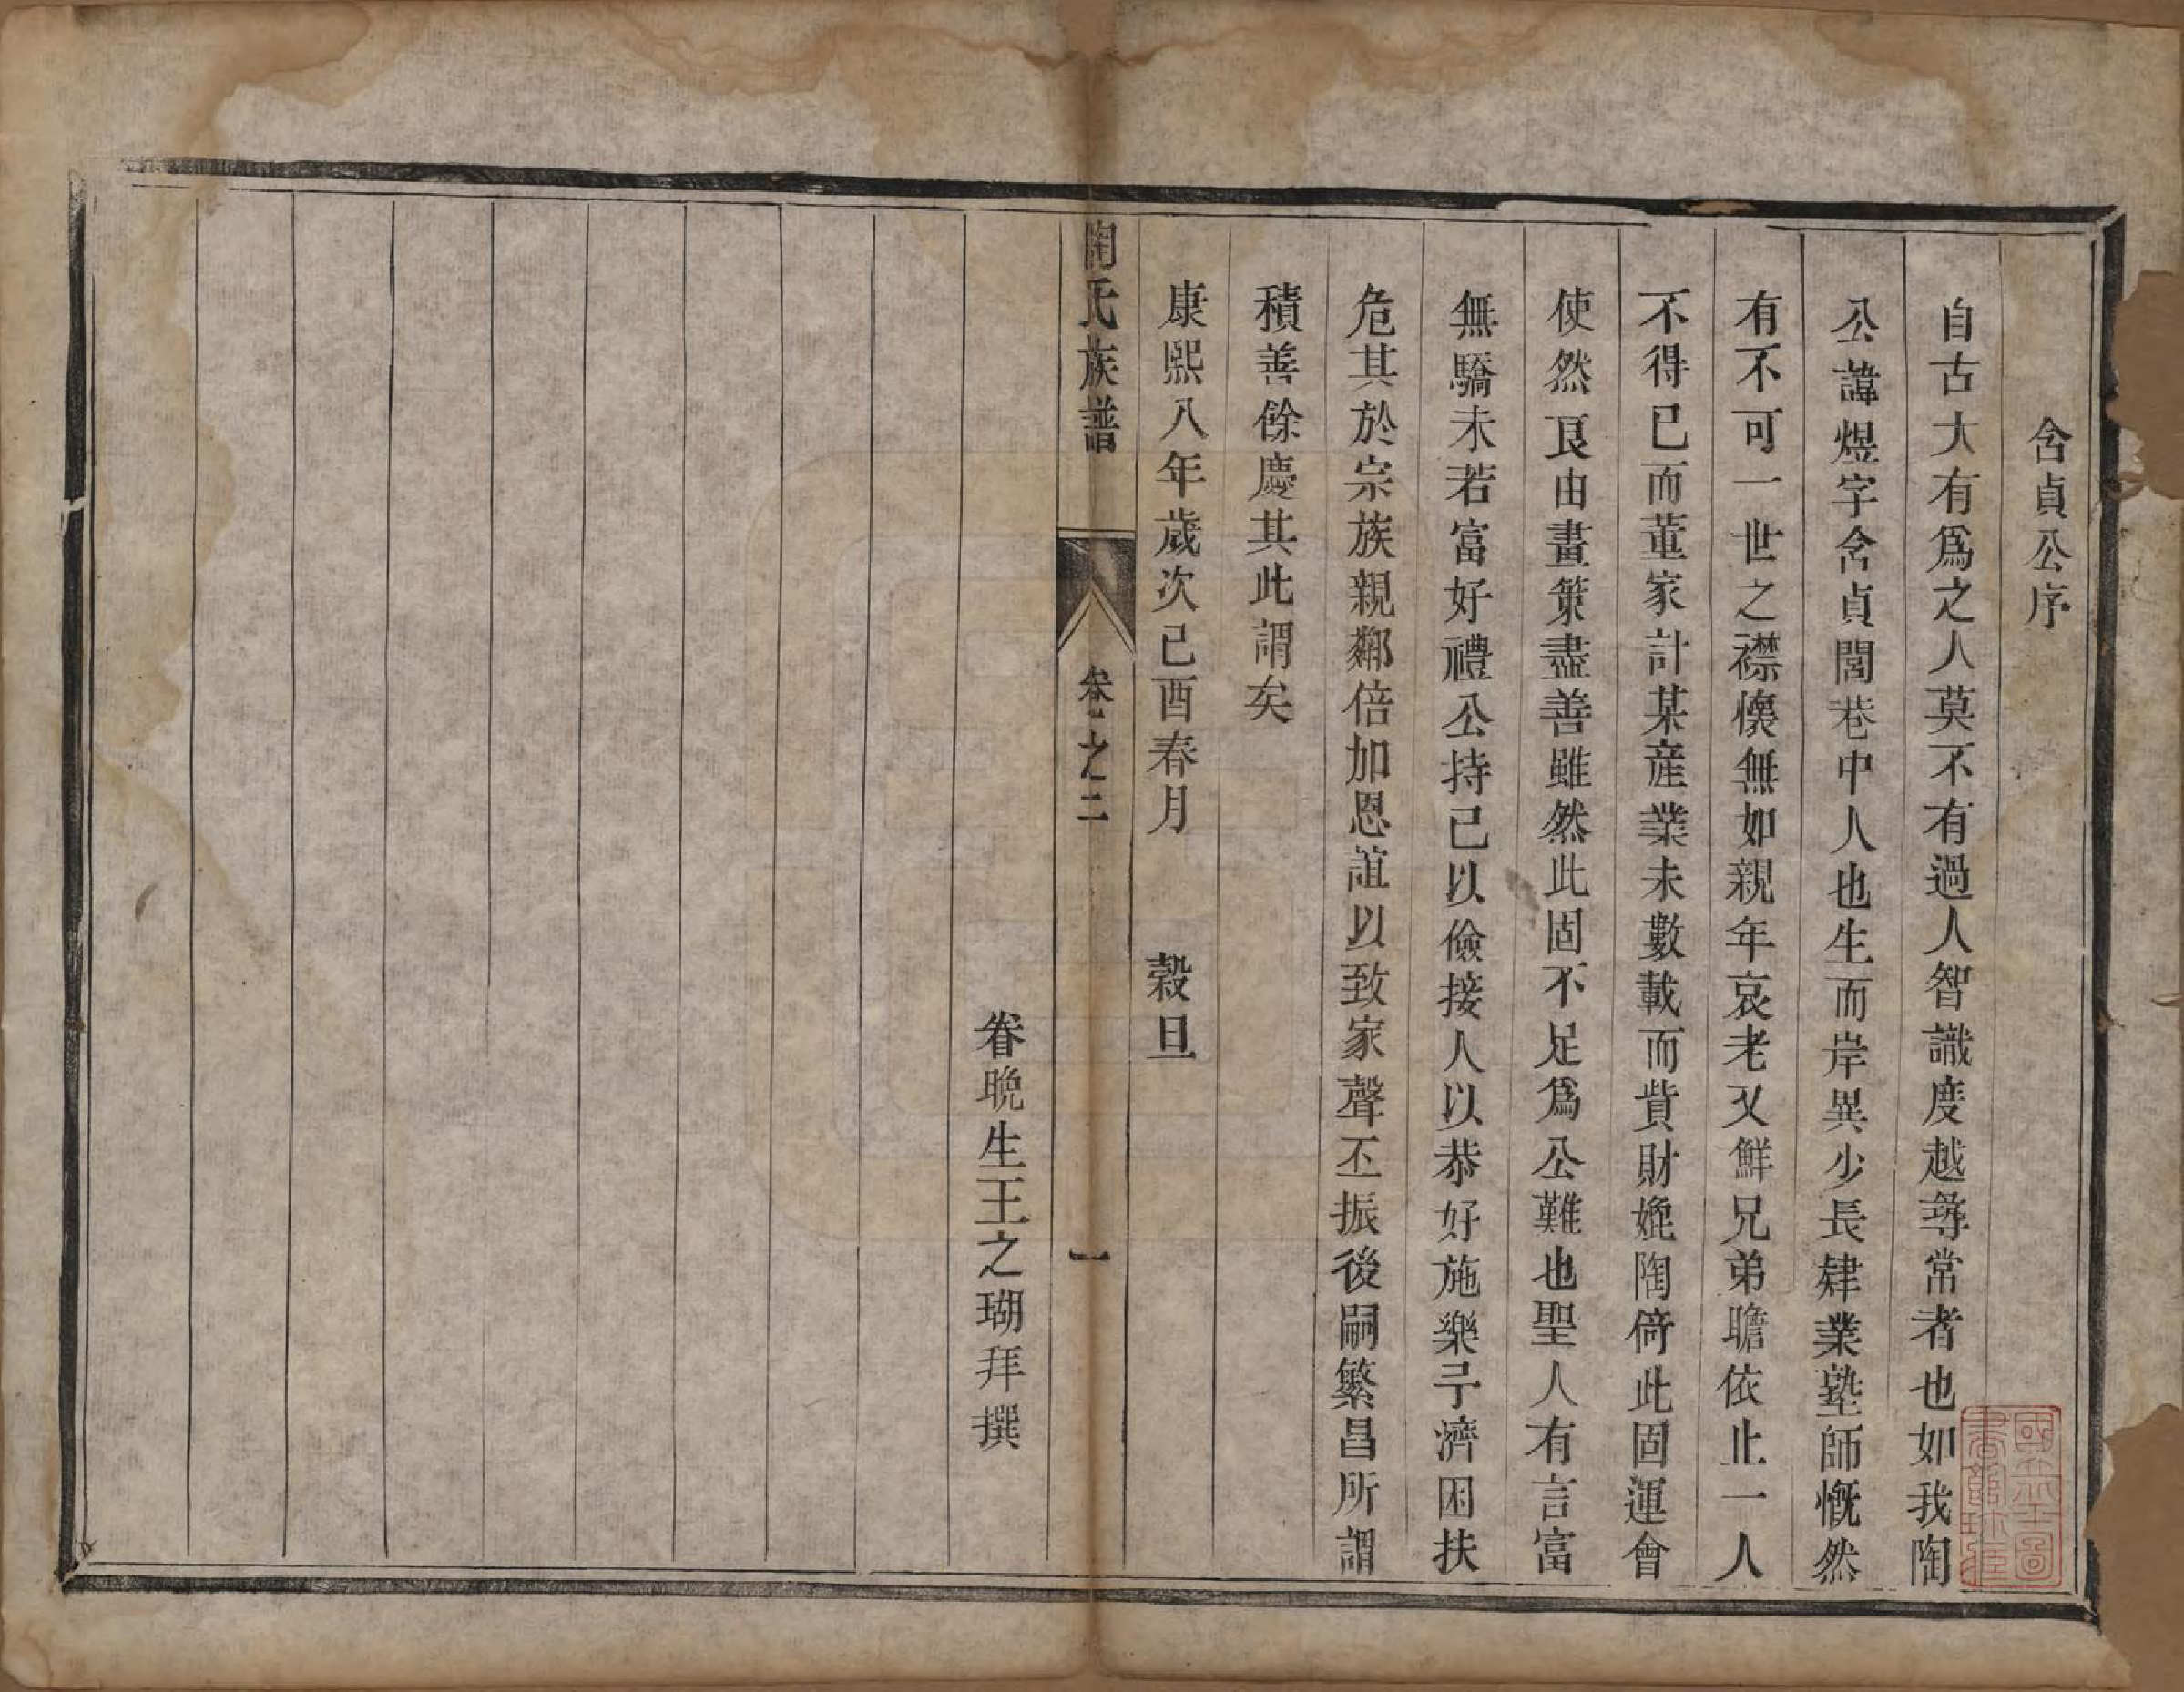 含貞公序
自古大有爲之人莫不有過人智識度越尋常者也如我陶
公諱煜字含貞閭巷中人也生而岸異少長肄業塾師慨然
有不可一世之襟懷無如親年哀老又鮮兄弟瞻依止一人
不得已而董家計某産業未數載而貲財娩陶倚此固運會
使然良由畫策盡善雖然此固不足爲公難也聖人有言富
無驕未若富好禮公持己以儉接人以恭好施樂予濟困扶
危其於宗族親鄰倍加恩誼以致家聲丕振後嗣繁昌所謂
積善餘慶其此謂矣
康熙八年歲次己酉春月 穀旦
陶氏族譜 卷之二 一
眷晩生王之瑚拜撰
國立北平圖書館珍藏